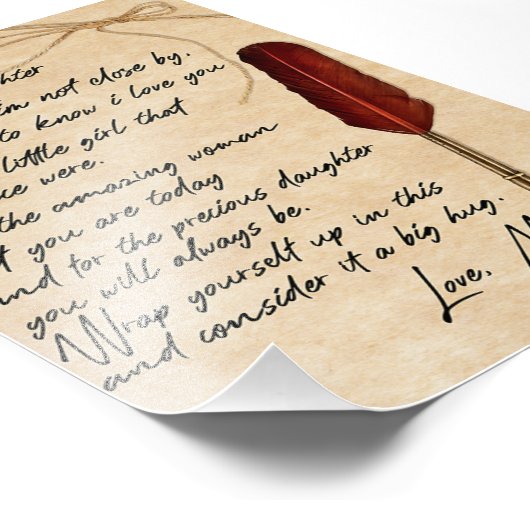 ghter
i'm not close by,
to know i love you
little girl that
ce were.
the amazing woman
t you are today
nd for the precious daughter
you will always be.
Wrap yourself up in this
and consider it a big hug.
Love,